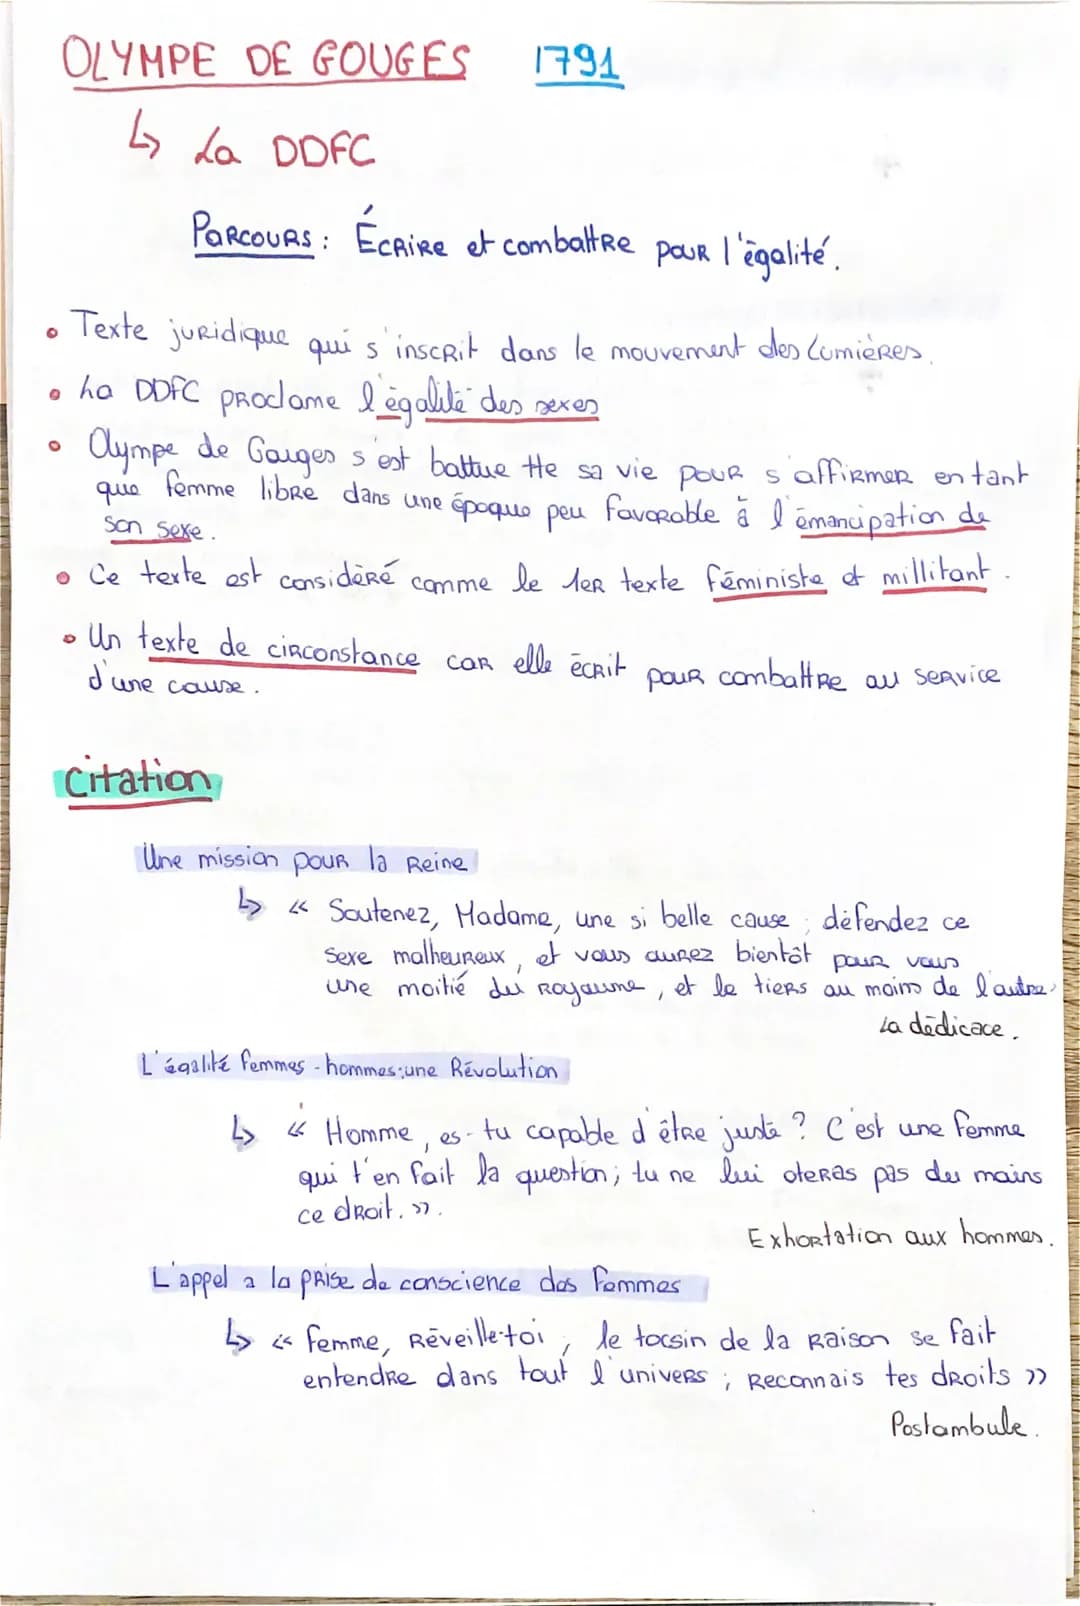 OLYMPE DE GOUGES 1791
↳ La DDFC
PARCOURS : Écrire et combattre pour l'égalité.
• Texte juridique qui s'inscrit dans le mouvement des Lumières.
• La DDFC proclame l'égalité des sexes
• Olympe de Gouges s'est battue tte sa vie pour s'affirmer en tant
que femme libre dans une époque peu favorable à l'émancipation de
son sexe.
• Ce texte est considéré comme le 1er texte féministe et millitant.
• Un texte de circonstance car elle écrit pour combattre au service
d'une cause.
Citation
Une mission pour la Reine
↳ « Soutenez, Madame, une si belle cause ; défendez ce
sexe malheureux, et vous aurez bientôt pour vous
une moitié du Royaume, et le tiers au moins de l'autre,
La dédicace.
L'égalité femmes-hommes : une Révolution
↳ « Homme, es-tu capable d'être juste ? C'est une femme
qui t'en fait la question ; tu ne lui oteras pas du moins
ce droit. ».
Exhortation aux hommes.
L'appel a la prise de conscience des femmes
↳ « femme, Réveille-toi ; le tocsin de la raison se fait
entendre dans tout l'univers ; Reconnais tes droits »
Postambule.